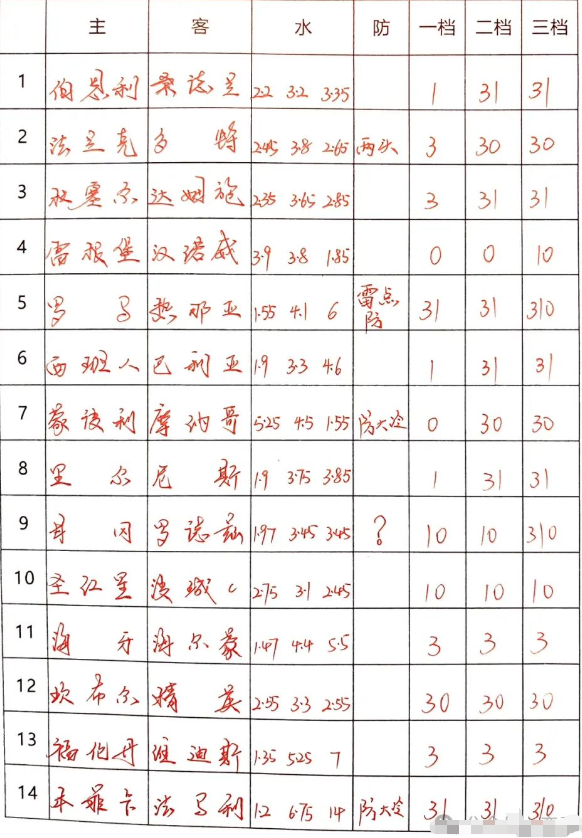 主 客 水 防 一档 二档 三档
1 伯恩利 桑德兰 2.2 3.2 3.35 1 31 31
2 法兰克 多特 2.45 3.8 2.65 两头 3 30 30
3 杜塞尔 达姆施 2.35 3.65 2.85 3 31 31
4 雷根堡 汉诺威 3.9 3.8 1.85 0 0 10
5 罗马 热那亚 1.55 4.1 6 雷点防 31 31 310
6 西班人 巴利亚 1.9 3.3 4.6 1 31 31
7 蒙彼利 摩纳哥 5.25 4.5 1.55 防大冷 0 30 30
8 里尔 尼斯 1.9 3.75 3.85 1 31 31
9 冈 罗德兹 1.97 3.45 3.45 ? 10 10 310
10 圣红星 波城 2.75 3.1 2.45 10 10 10
11 海牙 海尔蒙 1.47 4.4 5.5 3 3 3
12 坎布尔 精英 2.55 3.3 2.55 30 30 30
13 福伦丹 维迪斯 1.35 5.25 7 3 3 3
14 本菲卡 法马利 1.2 6.75 14 防大冷 31 31 310